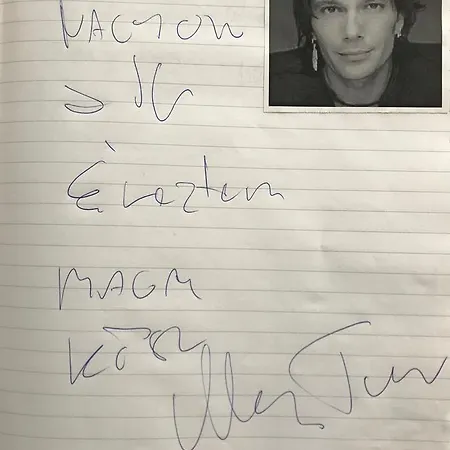 NAGYON
JÓL
Éreztem
MAGAM
KÖSZ